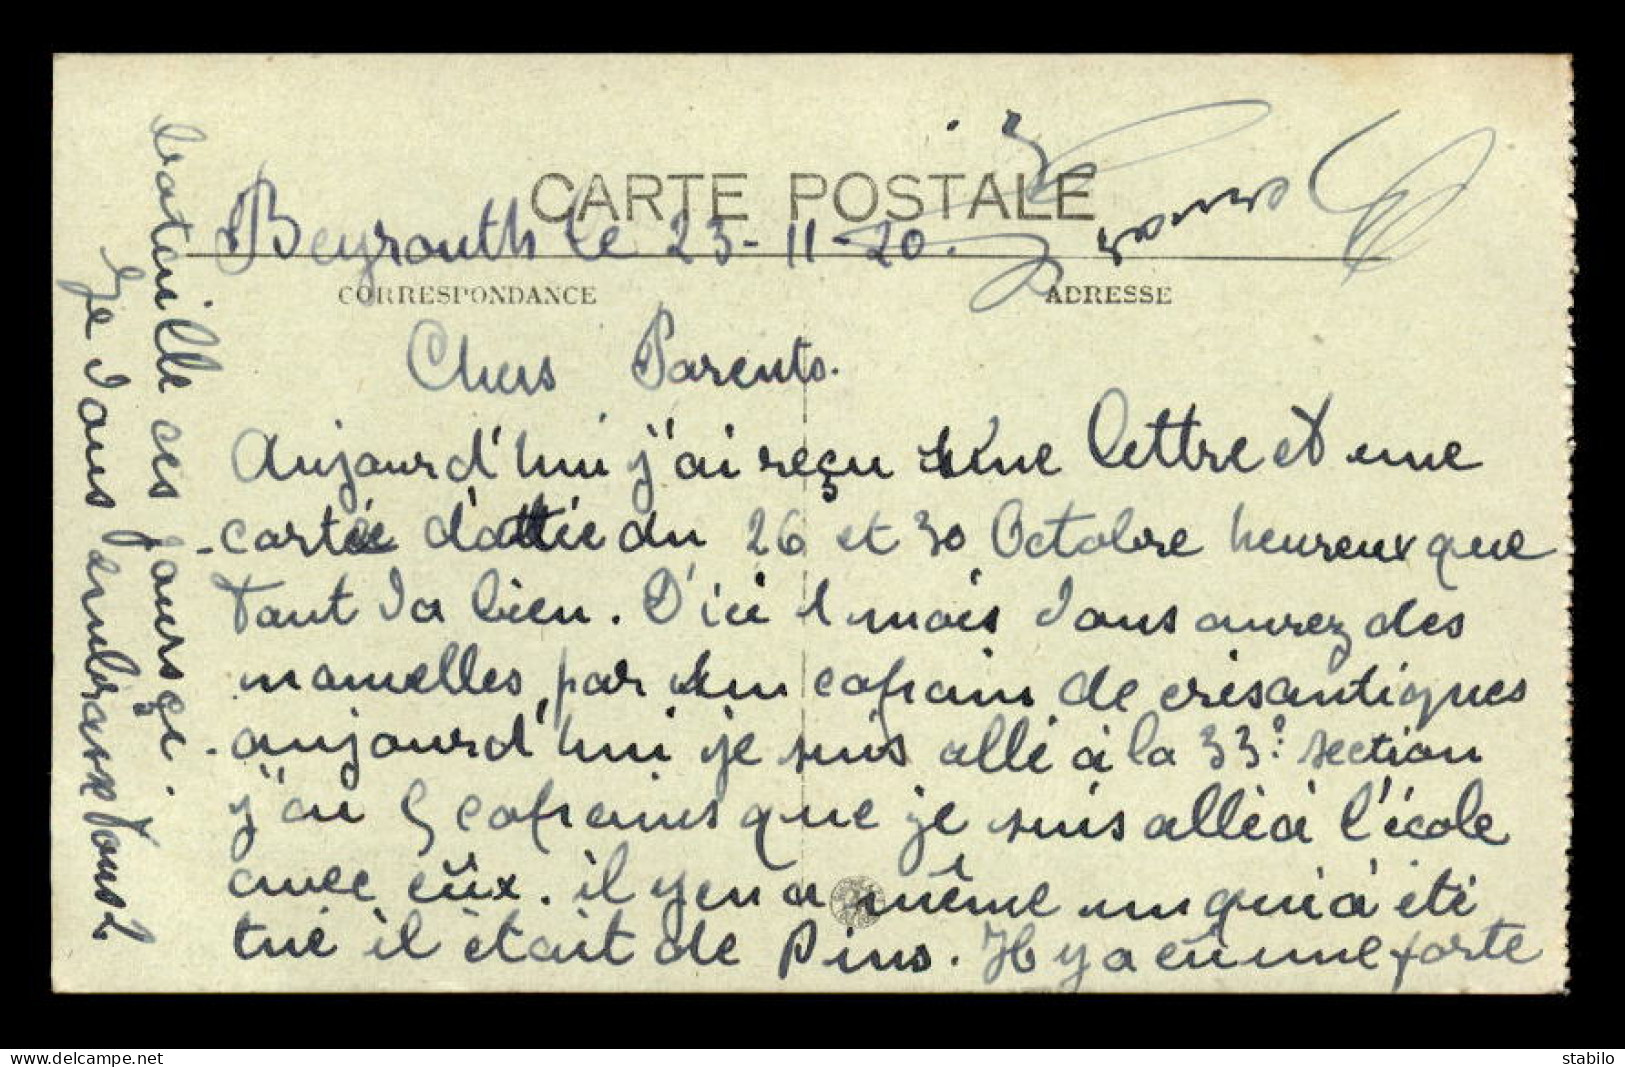 CARTE POSTALE
Beyrouth le 23-11-20.
CORRESPONDANCE
ADRESSE
Chers Parents.
Aujourd'hui j'ai reçu une lettre et une
carte du 26 et 30 Octobre heureux que
tout va bien. D'ici 1 mois vous aurez des
nouvelles par un copain de
aujourd'hui je suis allé à la 33e section
j'ai 5 copains que je suis allé à l'école
avec eüx. il y en a même un qui a été
tué il était de Pins. Il y a eu une forte
bataille ces jours çi.
Je vous embrasse tous 2
www.delcampe.net
stabilo